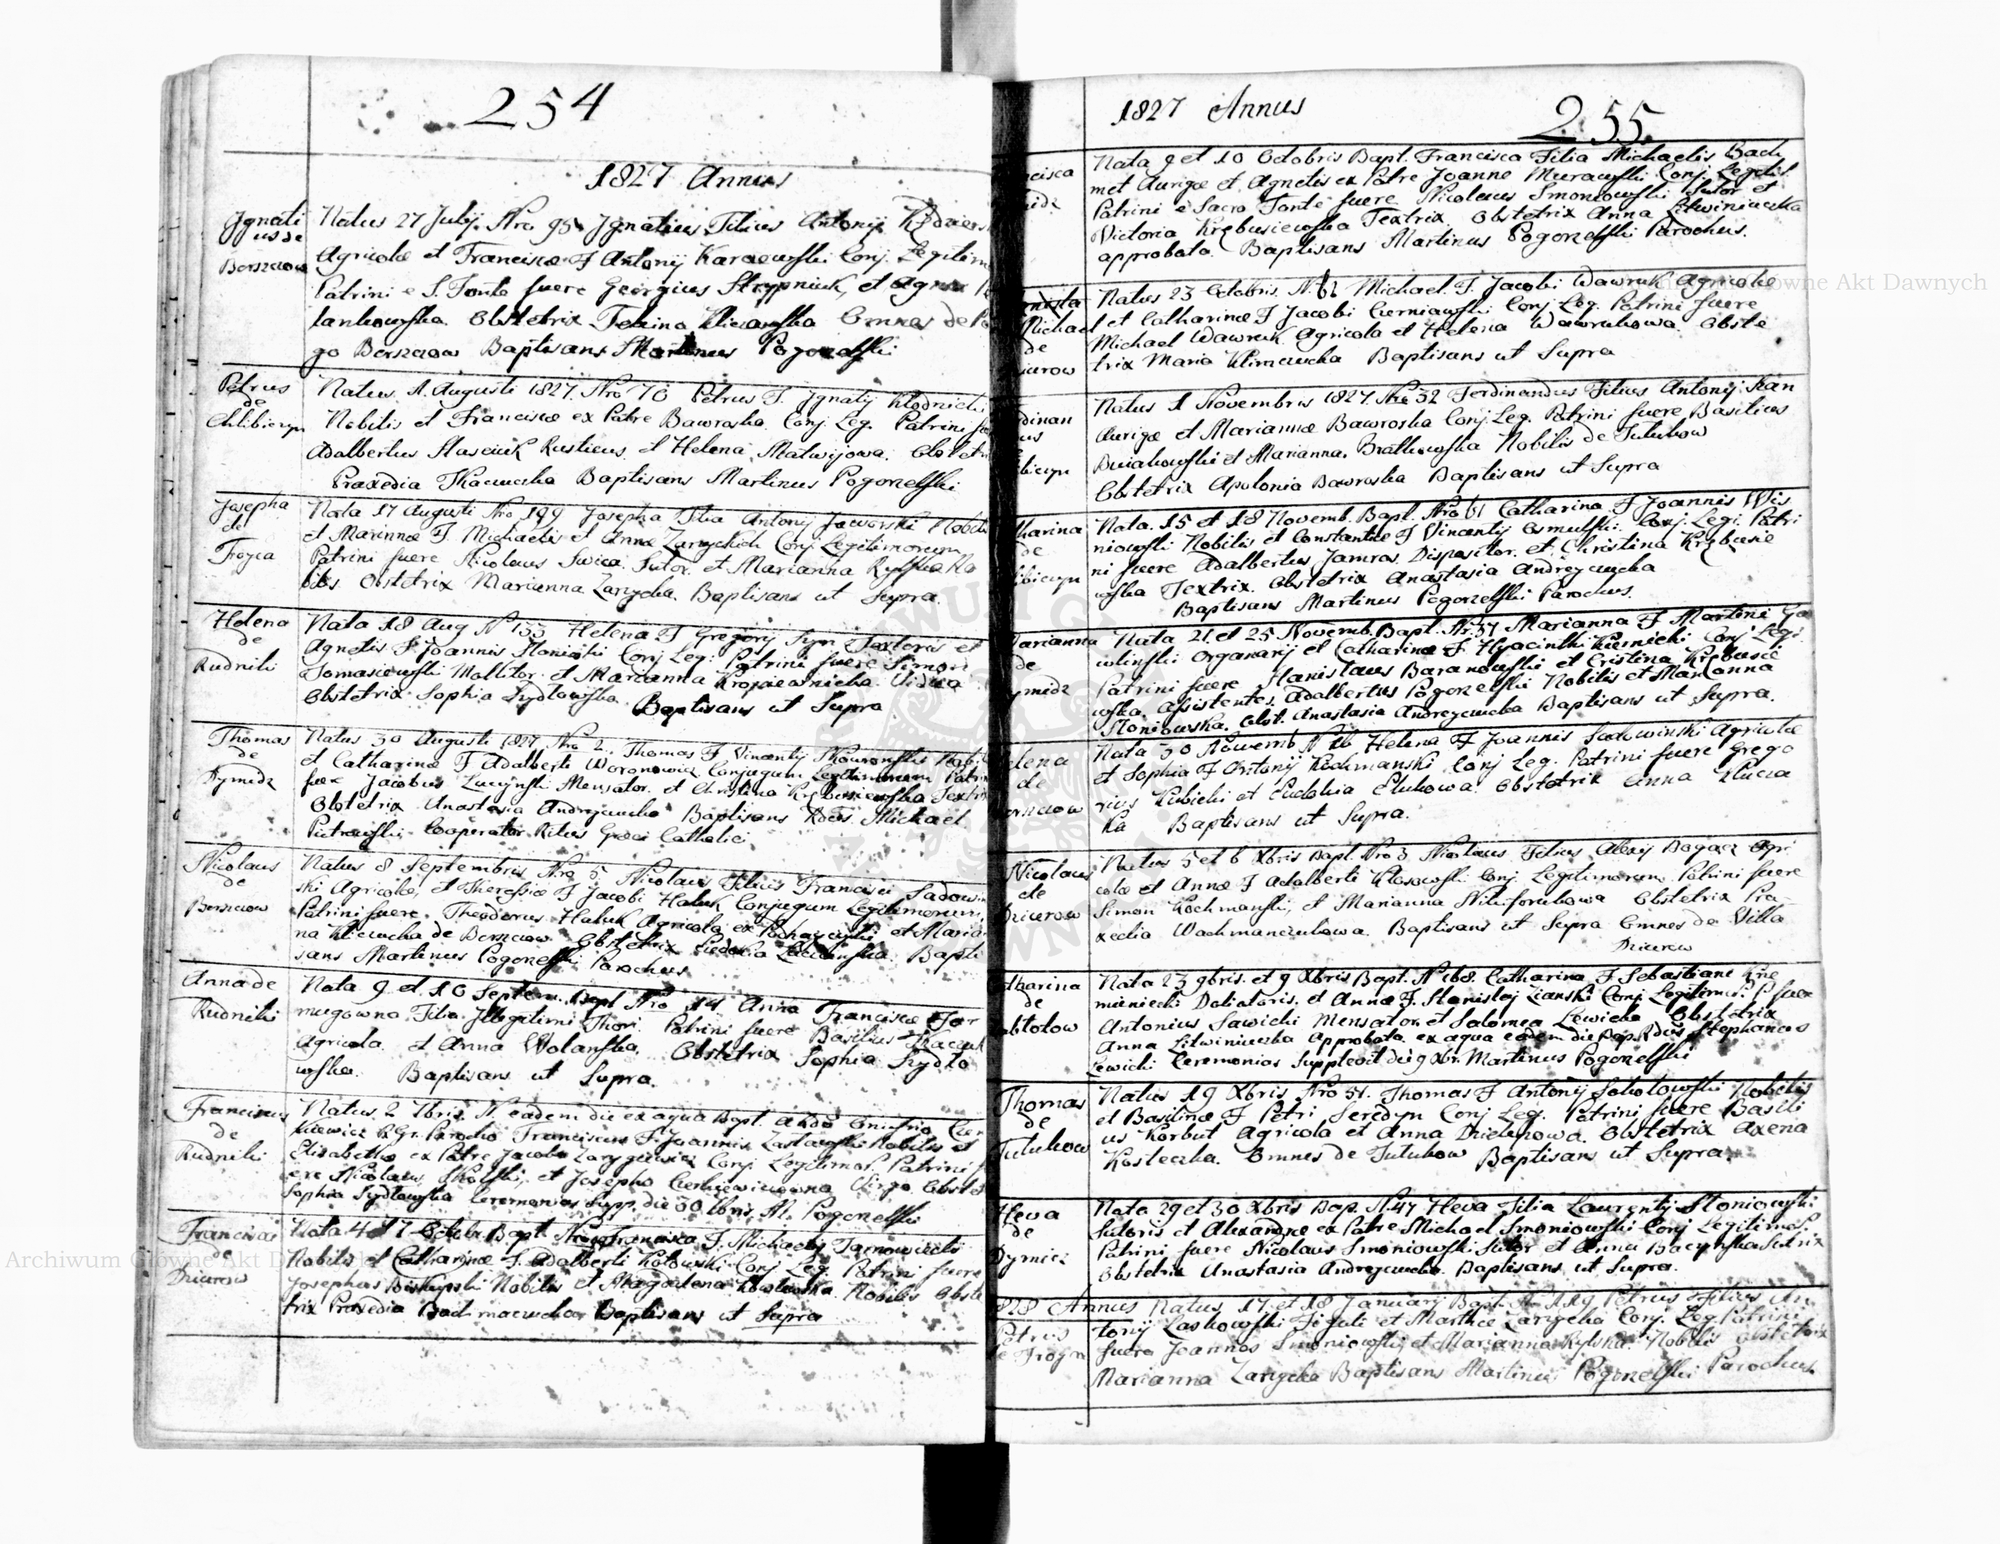 254
1827 Annus
Ignati
us de
Borszczow
Natus 27 Julij. Nro 95 Ignatius Filius Antonij
Agricolæ et Franciscæ F Antonij Karaewski Conj. Legitim
Patrini e S. Fonte fuere Georgius Skrypniuk, et Agnes
lankowska. Obstetrix Tekina Klicawska Omnes de
go Borszczow Baptisans Martinus Pogorzelski
Petrus
de
Chlibiczyn
Natus 1 Augusti 1827. Nro 70 Petrus F. Ignatij Kłodnicki
Nobilis et Franciscæ ex Patre Baworoska. Conj. Leg. Patrini
Adalbertus Staseiuk Rusticus, et Helena Matwijowa. Obstetri
Praxedia Tkaczucka Baptisans Martinus Pogorzelski
Josepha
de
Troyca
Nata 17 Augusti Nro 199 Josepha Filia Antonij Jaworski Nobilis
et Mariannæ F. Michaelis et Annæ Zarzyckich Conj. Legitimorum
Patrini fuere Nicolaus Swica Sutor. et Marianna
bilis Obstetrix Marianna Zarzycka. Baptisans ut Supra.
Helena
de
Rudniki
Nata 18 Aug N 133 Helena F Gregorij Textoris et
Agnetis F Joannis Conj Leg: Patrini fuere Simon
Tomasiewski Mollitor. et Marianna Vidua
Obstetrix Sophia Szydłowska Baptisans ut Supra
Thomas
de
Dymidz
Natus 30 Augusti 1827 Nro 2. Thomas F Vincentij
et Catharinæ F Adalberti Woronowicz Conjugum Legitimorum Patrin
fuere Jacobus Zuczynski Mensator. et Christina Krzbusiewska Textrix
Obstetrix Anastasia Andreyczucka Baptisans Rdus Michael
Pietrowski Cooperator Ritus Græci Catholici
Nicolaus
de
Borszczow
Natus 8 Septembris Nro 5 Nicolaus Filius Francisci Sadowin
ski Agricolæ, et Theressiæ F Jacobi Haluk Conjugum Legitimorum,
Patrini fuere Theodorus Haluk Agricola ex et Maria
na Kliczucka de Borszczow Obstetrix Eudokia Baptis
sans Martinus Pogorzelski Parochus
Anna de
Rudniki
Nata 9 et 10 Septem. Bapt Nro 14 Anna Franciscæ
mugowna Filia Illegitimi Thori. Patrini fuere Basilius
Agricola et Anna Wolanska. Obstetrix Sophia Szydło
wska. Baptisans ut Supra.
Franciscus
de
Rudniki
Natus 2 7bris N eadem die ex aqua Bapt. ab Onufrio
kiewicz R. Gr. Parocho Franciscus F. Joannis Zastawski Nobilis et
Elisabethæ ex Patre Jacobo Conj Legitimor. Patrini f
ere Nicolaus et Josepha Virgo. Obst
Sophia Szydłowska Ceremonias Supp. die 30 7bris M. Pogorzelski
Francisca
de
Dziurow
Nata 4 et 7 Octobr. Bapt. Nro Francisca F. Michaelis Tarnowiecki
Nobilis et Catharinæ F. Adalberti Kotowski Conj Leg. Patrini fuere
Josephus Biskupski Nobilis et Magdalena Nobilis Obste
trix Praxedia Bachmaczucka Baptisans ut Supra
1827 Annus
255
ncisca
Nata 9 et 10 Octobris Bapt. Francisca Filia Michaelis Bach
met Aurigæ et Agnetis ex Patre Joanne Murawski Conj. Legitil.
Patrini e Sacro Fonte fuere Nicolaus Smoniowski Sutor et
Victoria Krzbusiewska Textrix Obstetrix Anna Litwiniuczka
approbata. Baptisans Martinus Pogorzelski Parochus.
Michael
de
iurow
Natus 23 Octobris. N. 61 Michael F. Jacobi Wawruk Agricolæ
et Catharinæ F Jacobi Czerniawski Conj Leg. Patrini fuere
Michael Wawruk Agricola et Helena Wawrukowa. Obste
trix Maria Klimczucka Baptisans ut Supra
dinan
us
ibiczyn
Natus 1 Novembris 1827. Nro 32 Ferdinandus Filius Antonij
Aurigæ et Mariannæ Baworoska Conj Leg. Patrini fuere Basilius
et Marianna Bratkowska Nobilis de Tutukow
Obstetrix Apolonia Baworoska Baptisans ut Supra
tharina
de
libiczyn
Nata. 15 et 18 Novemb. Bapt. Nro 61 Catharina F Joannis Wis
niowski Nobilis et Constantiæ F Vincentij Osmulski. Conj. Legi. Patri
ni fuere Adalbertus Jamroz Dispositor. et Christina Krzbusie
wska Textrix. Obstetrix Anastasia Andreyczucka
Baptisans Martinus Pogorzelski Parochus.
Marianna
de
ymidz
Nata 21 et 25 Novemb. Bapt. Nr. 37 Marianna F Martini Ga
wlinski Organarij et Catharinæ F Hyacinthi Kiernicki Conj Legi.
Patrini fuere Stanislaus Baranowski et Cristina Krzbusie
wska, Assistentes. Adalbertus Pogorzelski Nobilis et Marianna
Stoniowska. Obst. Anastasia Andreyczucka Baptisans ut Supra.
elena
de
orszczow
Nata 30 Novemb N 16 Helena F Joannis Sadowinski Agricolæ
et Sophia F Antonij Kochmanski Conj Leg. Patrini fuere Grego
rius Kubicki et Eudokia Olukowa. Obstetrix Anna Klicza
ka Baptisans ut Supra.
Nicolaus
de
Dziurow
Natus 5 et 6 Xbris Bapt. Nro 3 Nicolaus Filius Alexij Bogacz Agri
colæ et Annæ F Adalberti Kłosowski Conj. Legitimorum. Patrini fuere
Simon Kochmanski, et Marianna Nikiforukowa Obstetrix Pra
xedia Wachmanczukowa. Baptisans ut Supra Omnes de Villa
Dziurow
atharina
de
abłotow
Nata 23 9bris. et 9 Xbris Bapt. N 168. Catharina F. Sebastiani Krze
mieniecki Doliatoris. et Annæ F. Stanislaj Conj. Legitimor. P. fuere
Antonius Sawicki Mensator. et Salomea Lewicka Obstetrix
Anna Litwiniuczka Approbata. ex aqua eadem die Bapt. Rdus Stephanus
Lewicki Ceremonias Supplevit die 9 Xbr. Martinus Pogorzelski
Thomas
de
Tutukow
Natus 19 Xbris Nro 51. Thomas F Antonij Sokołowski Nobilis
et Basiliæ F Petri Seredyn Conj Leg. Patrini fuere Basili
us Korbut Agricola et Anna Obstetrix Axena
Kosteczka. Omnes de Tutukow Baptisans ut Supra.
Heva
de
Dymicz
Nata 29 et 30 Xbris Bap. N. 47 Heva Filia Laurentij Stoniowski
Sutoris et Alexandræ ex Patre Michael Smoniowski Conj Legitimor.
Patrini fuere Nicolaus Smoniowski Sutor et Anna Baczynska Sutrix
Obstetrix Anastasia Andreyczucka. Baptisans ut Supra.
1828 Annus
Petrus
de Troyca
Natus 17 et 18 January Bapt. Nr 119 Petrus Filius An
tonij Laskowski Figuli et Marthæ Zarzycka Conj. Leg. Patrini
fuere Joannes Smoniowski, et Marianna Rylska. Nobilis Obstetrix
Marianna Zarzycka Baptisans Martinus Pogorzelski Parochus.
Archiwum Główne Akt Dawnych